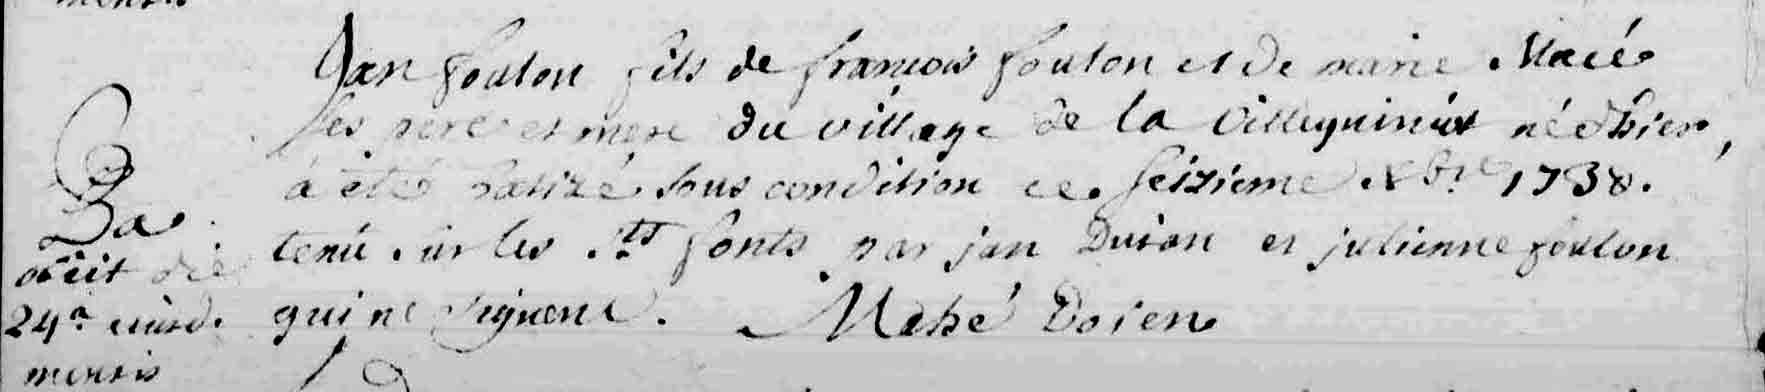 mensis
Jan foulon fils de francois foulon et de marie Macé
ses pere et mere du village de la villeguinüt né d'hier,
a été batizé sous condition ce seizieme Xbre 1738.
tenu sur les Sts fonts par jan Duran et julienne foulon
qui ne signent. Mahé Doien
Ba
obiit die
24a eiusd.
mensis